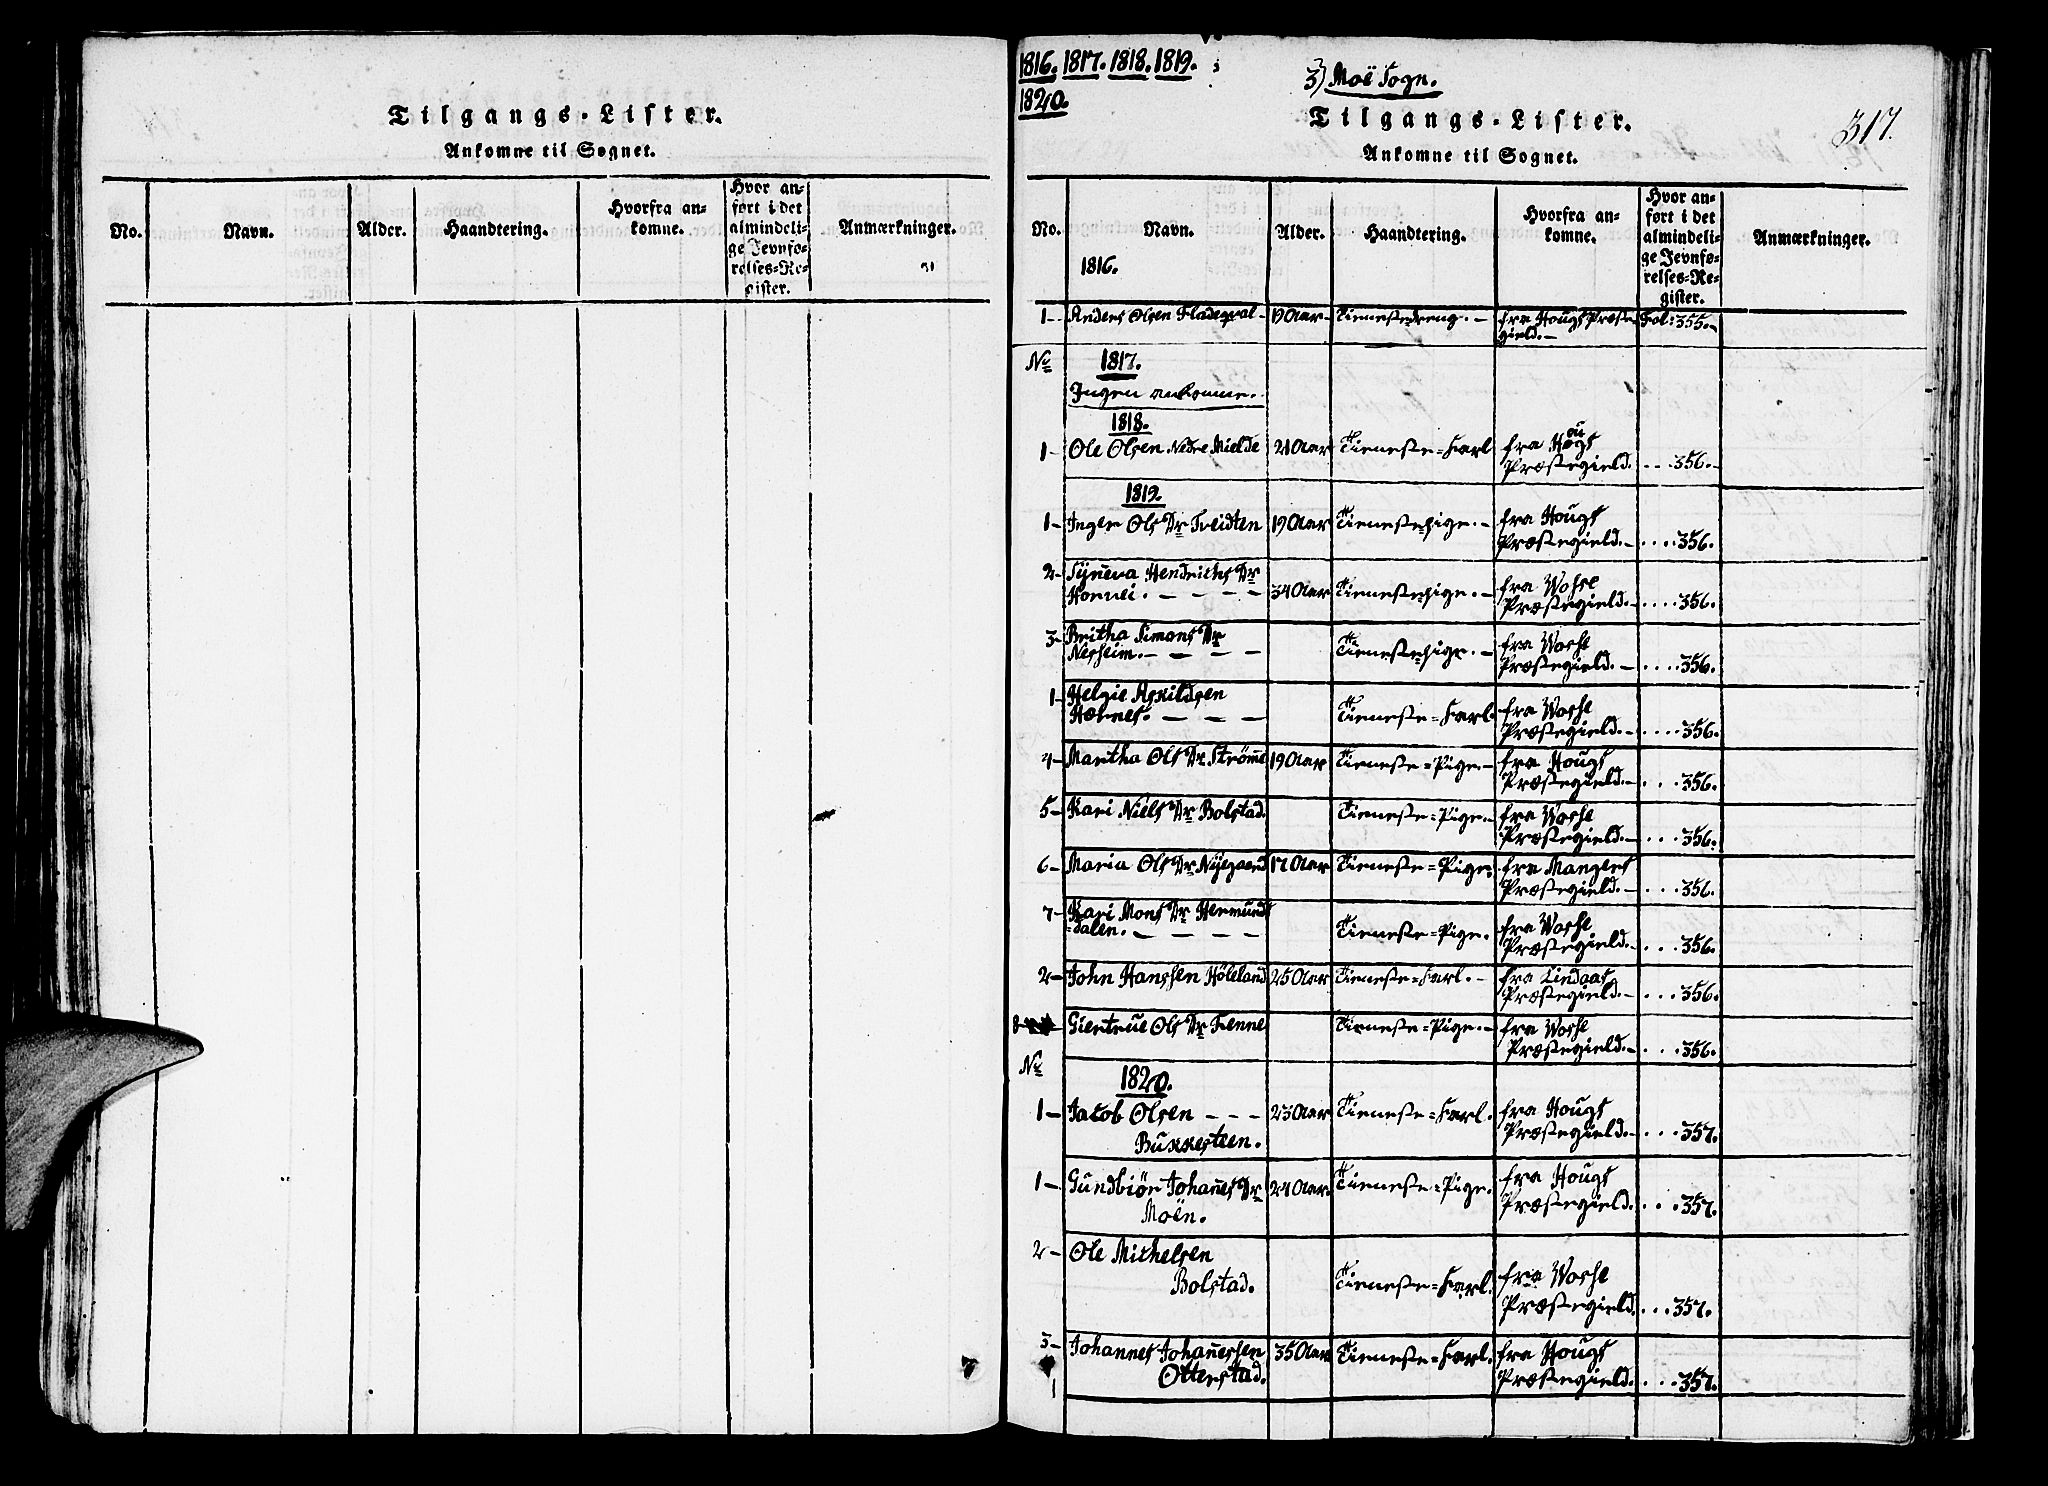 Tilgangs-Lister.
Ankomne til Sognet.
No. Navn. Alder. Haandtering. Hvorfra ankomne. Hvor anført i det almindelige Jevnførelses-Register. Anmærkninger.
1816. 1817. 1818. 1819.
1820.
3) Moë Sogn.
317.
Tilgangs-Lister.
Ankomne til Sognet.
No. Navn. Alder. Haandtering. Hvorfra ankomne. Hvor anført i det almindelige Jevnførelses-Register. Anmærkninger.
1816.
1 - Anders Olsen Fladeqval - 19 Aar - Tienestedreng. - fra Hougs Præste Fol: 355. -
gield. -
No 1817.
Ingen ankomne.
1818.
1 - Ole Olsen Nedre Mielde 21 Aar Tieneste=Karl fra Hougs
Præstegield. . . . 356. -
1819.
1 - Inger Ols Dr Tveidten 19 Aar Tienestepige. - fra Hougs
Præstegield. - . . . . 356.
2 - Syneva Hendrichs Dr fra Wosse
Horvei. - - - - 34 Aar Tienestepige. - Præstegield. - . . . . 356.
3 - Britha Simons Dr fra Wosse
Nesheim. - - - - Tienestepige. - Præstegield. - . . . . 356.
1 - Helgie Askildsen
Hærnes. - - - Tieneste=Karl. fra Wosse
Præstegield. - . . . . 356.
4 - Martha Ols Dr Strømme 19 Aar Tieneste=Pige. - fra Hougs
Præstegield. - . . . 356.
5 - Kari Niels Dr Bolstad. Tieneste=Pige. - fra Wosse
Præstegield. - . . . 356.
6 - Maria Ols Dr Nygaard 17 Aar Tieneste=Pige. fra Mangers
Præstegield. - . . . 356.
7 - Kari Mons Dr Hermunds
=dalen. - - - - Tieneste=Pige. fra Wosse
Præstegield. - . . . 356.
2 - John Hanssen Høleland 25 Aar Tieneste=Karl. - fra Lindaas
Præstegield. - . . . 356.
8 Giertrue Ols Dr Tenne Tieneste=Pige. - fra Wosse
Præstegield. - . . . 356.
No 1820.
1 - Jacob Olsen - - - 23 Aar Tieneste=Karl. fra Hougs
Bukkesteen. Præstegield. - . . . 357.
1 - Gundbiør Johanes Dr 24 Aar. Tieneste=Pige. fra Hougs
Moën. Præstegield. . . . 357.
2 - Ole Michelsen
Bolstad. Tieneste=Karl. fra Wosse
Præstegield. . . . 357.
3 - Johannes Johanessen 35 Aar Tieneste=Karl. fra Hougs
Otterstad. Præstegield. . . . 357.